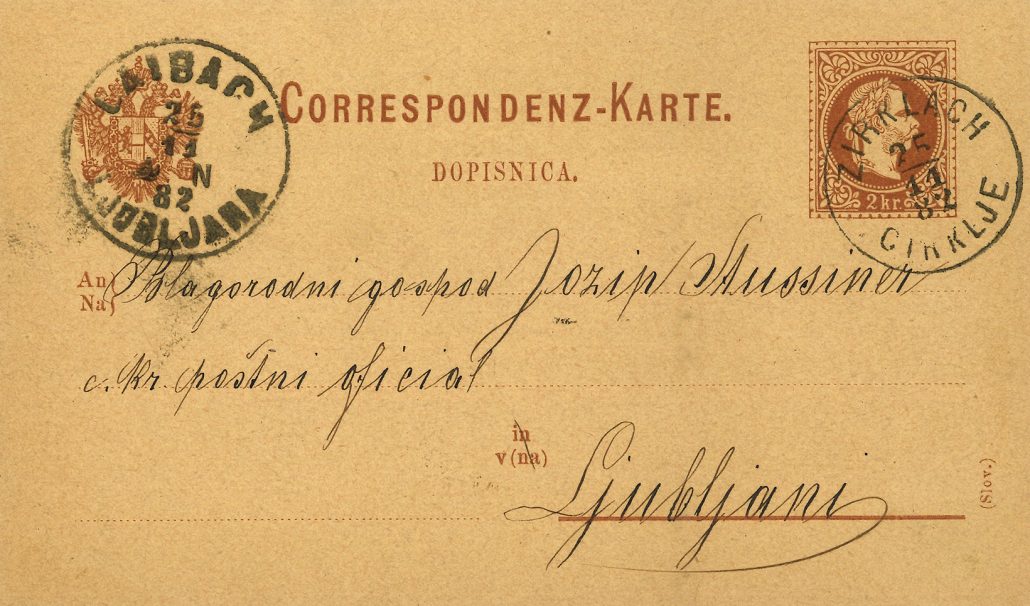 CORRESPONDENZ-KARTE.
DOPISNICA.
LAIBACH
25
11
N
82
LJUBLJANA
2 kr.
ZIRKLACH
25
11
82
CIRKLJE
An
Na
Blagorodni gospod Jozip Stussiner
c. kr. poštni oficial
in
v (na)
Ljubljani
(Slov.)